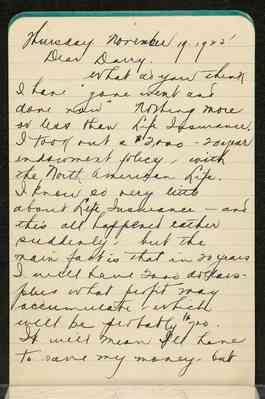 Thursday November 19, 1925
Dear Darry.
What do you think
I have "gone went and
done now" Nothing more
or less than Life Insurance.
I took out a $2,000 - 20 year
endowment policy, with
the North American Life.
I know so very little
about Life Insurance - and
this all happened rather
suddenly. but the
main fact is that in 20 years
I will have 2000 dollars -
plus what profit may
accumulate which
will be probably
It will mean I'll have
to save my money but